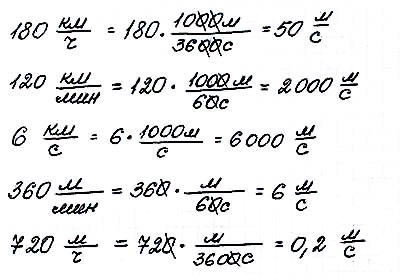 180 км/ч = 180 · 1000м/3600с = 50 м/с
120 км/мин = 120 · 1000м/60с = 2000 м/с
6 км/с = 6 · 1000м/с = 6000 м/с
360 м/мин = 360 · м/60с = 6 м/с
720 м/ч = 720 · м/3600с = 0,2 м/с